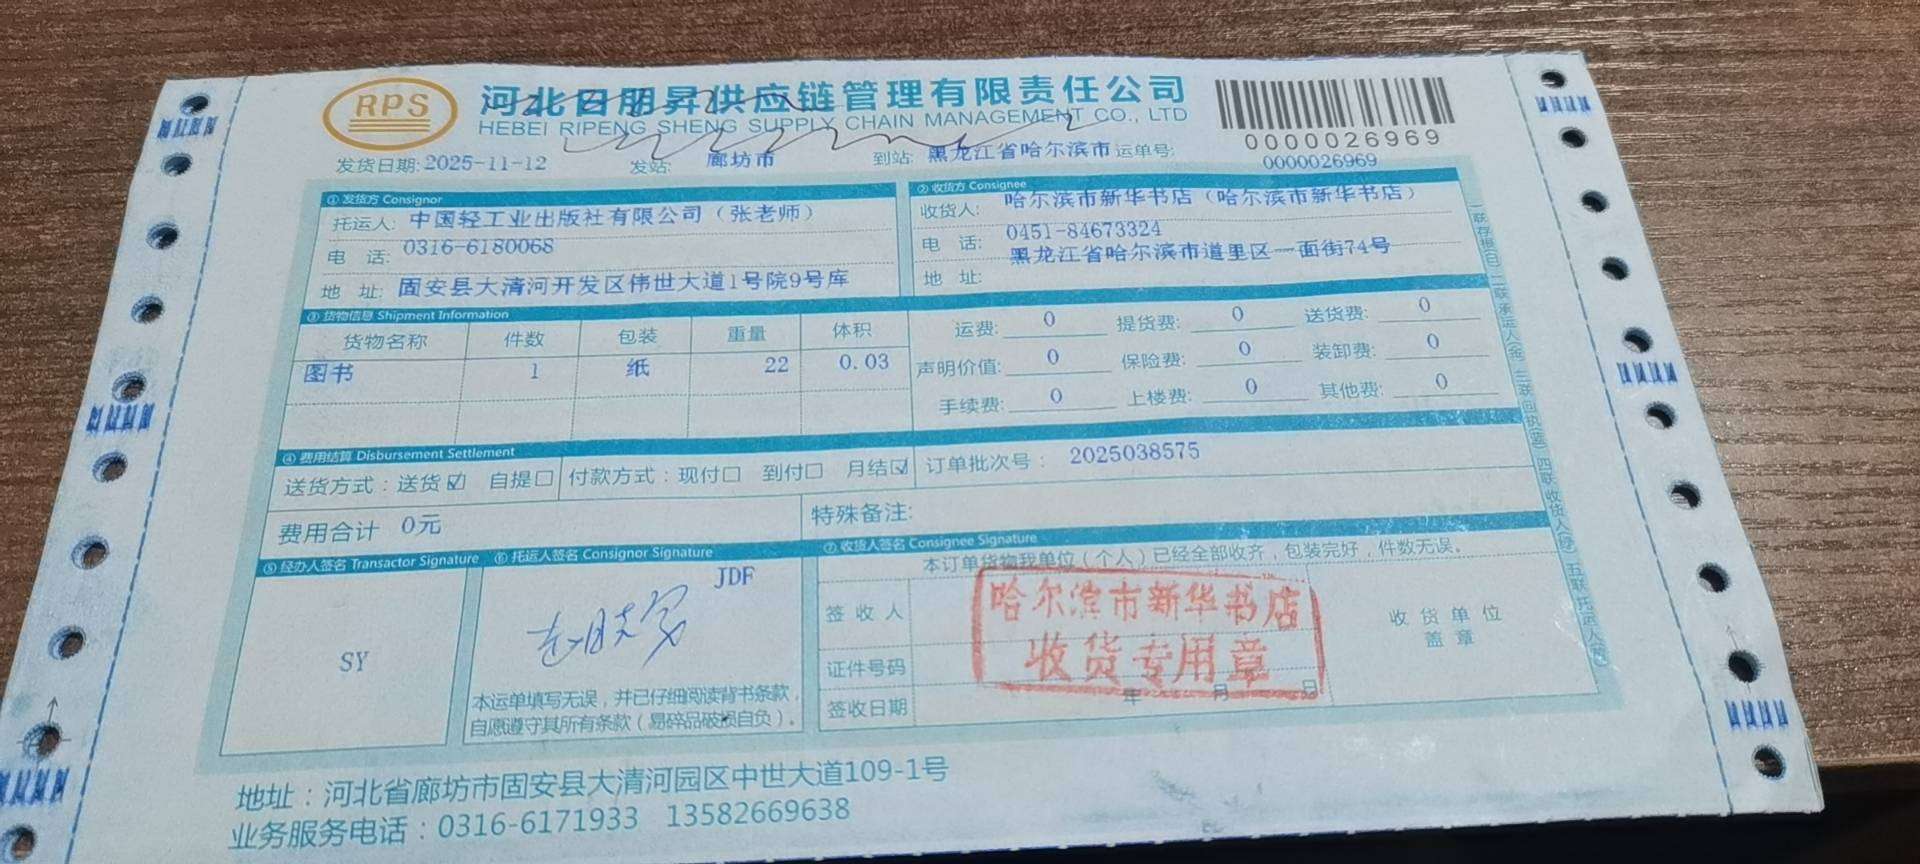 RPS
河北日朋昇供应链管理有限责任公司
HEBEI RIPENG SHENG SUPPLY CHAIN MANAGEMENT CO., LTD
0000026969
发货日期: 2025-11-12 发站: 廊坊市 到站: 黑龙江省哈尔滨市 运单号: 0000026969
① 发货方 Consignor
托运人: 中国轻工业出版社有限公司（张老师）
电 话: 0316-6180068
地 址: 固安县大清河开发区伟世大道1号院9号库
② 收货方 Consignee
收货人: 哈尔滨市新华书店（哈尔滨市新华书店）
电 话: 0451-84673324
地 址: 黑龙江省哈尔滨市道里区一面街74号
③ 货物信息 Shipment Information
货物名称 件数 包装 重量 体积
图书 1 纸 22 0.03
运费: 0 提货费: 0 送货费: 0
声明价值: 0 保险费: 0 装卸费: 0
手续费: 0 上楼费: 0 其他费: 0
④ 费用结算 Disbursement Settlement
送货方式：送货☑ 自提□ 付款方式：现付□ 到付□ 月结☑ 订单批次号： 2025038575
费用合计 0元 特殊备注:
⑤ 经办人签名 Transactor Signature
SY
⑥ 托运人签名 Consignor Signature
JDF
本运单填写无误，并已仔细阅读背书条款，
自愿遵守其所有条款（易碎品破损自负）。
⑦ 收货人签名 Consignee Signature
本订单货物我单位（个人）已经全部收齐，包装完好，件数无误。
签收人
证件号码
签收日期 年 月 日
收货单位
盖章
哈尔滨市新华书店
收货专用章
地址：河北省廊坊市固安县大清河园区中世大道109-1号
业务服务电话：0316-6171933 13582669638